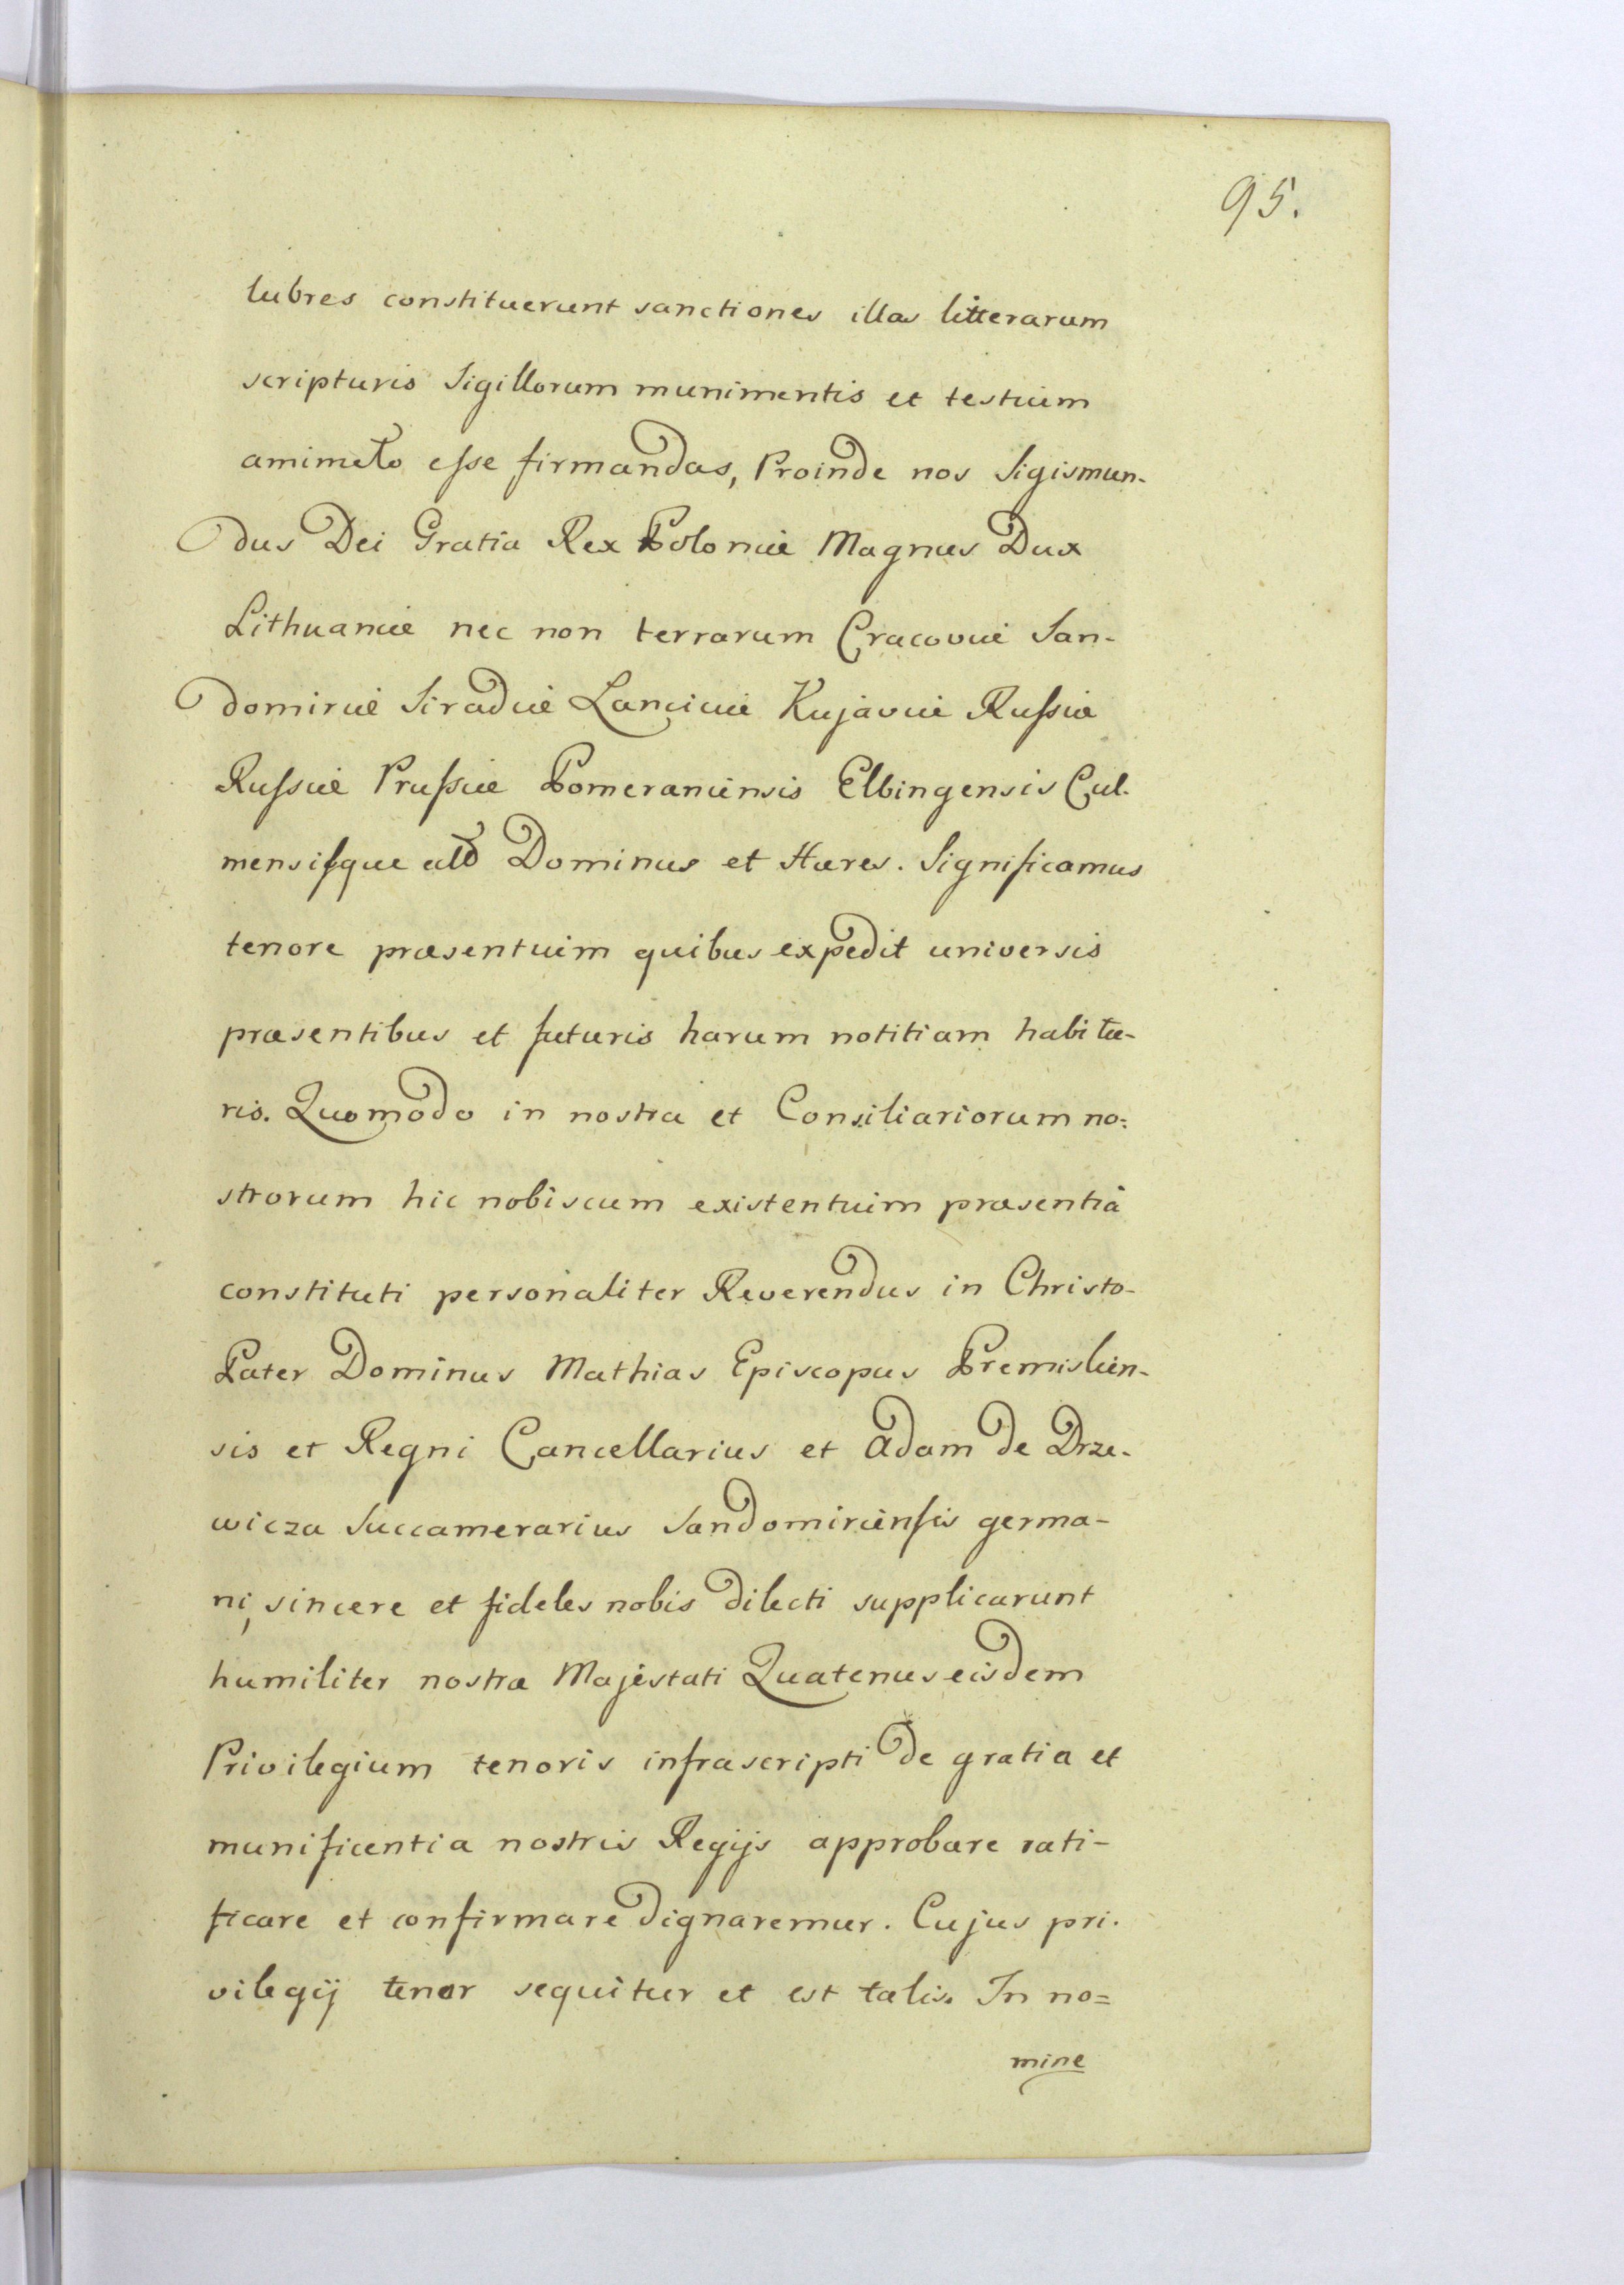 95.
lubres constituerunt sanctiones illas litterarum
scripturis Sigillorum munimentis et testium
esse firmandas, Proinde nos Sigismun-
dus Dei Gratia Rex Poloniæ Magnus Dux
Lithuaniæ nec non terrarum Cracoviæ San-
domiriæ Siradiæ Lanciciæ Kujaviæ Russiæ
Russiæ Prussiæ Pomeraniensis Elbingensis Cul-
mensisque Dominus et Hæres. Significamus
tenore præsentium quibus expedit universis
præsentibus et futuris harum notitiam habitu-
ris. Quomodo in nostra et Consiliariorum no=
strorum hic nobiscum existentium præsentia
constituti personaliter Reverendus in Christo-
Pater Dominus Mathias Episcopus Premislien-
sis et Regni Cancellarius et Adam de Drze-
wicza Succamerarius Sandomiriensis germa-
ni, sincere et fideles nobis dilecti supplicarunt
humiliter nostræ Majestati Quatenus eisdem
Privilegium tenoris infrascripti de gratia et
munificentia nostris Regijs approbare rati-
ficare et confirmare dignaremur. Cujus pri-
vilegij tenor sequitur et est talis. In no=
mine